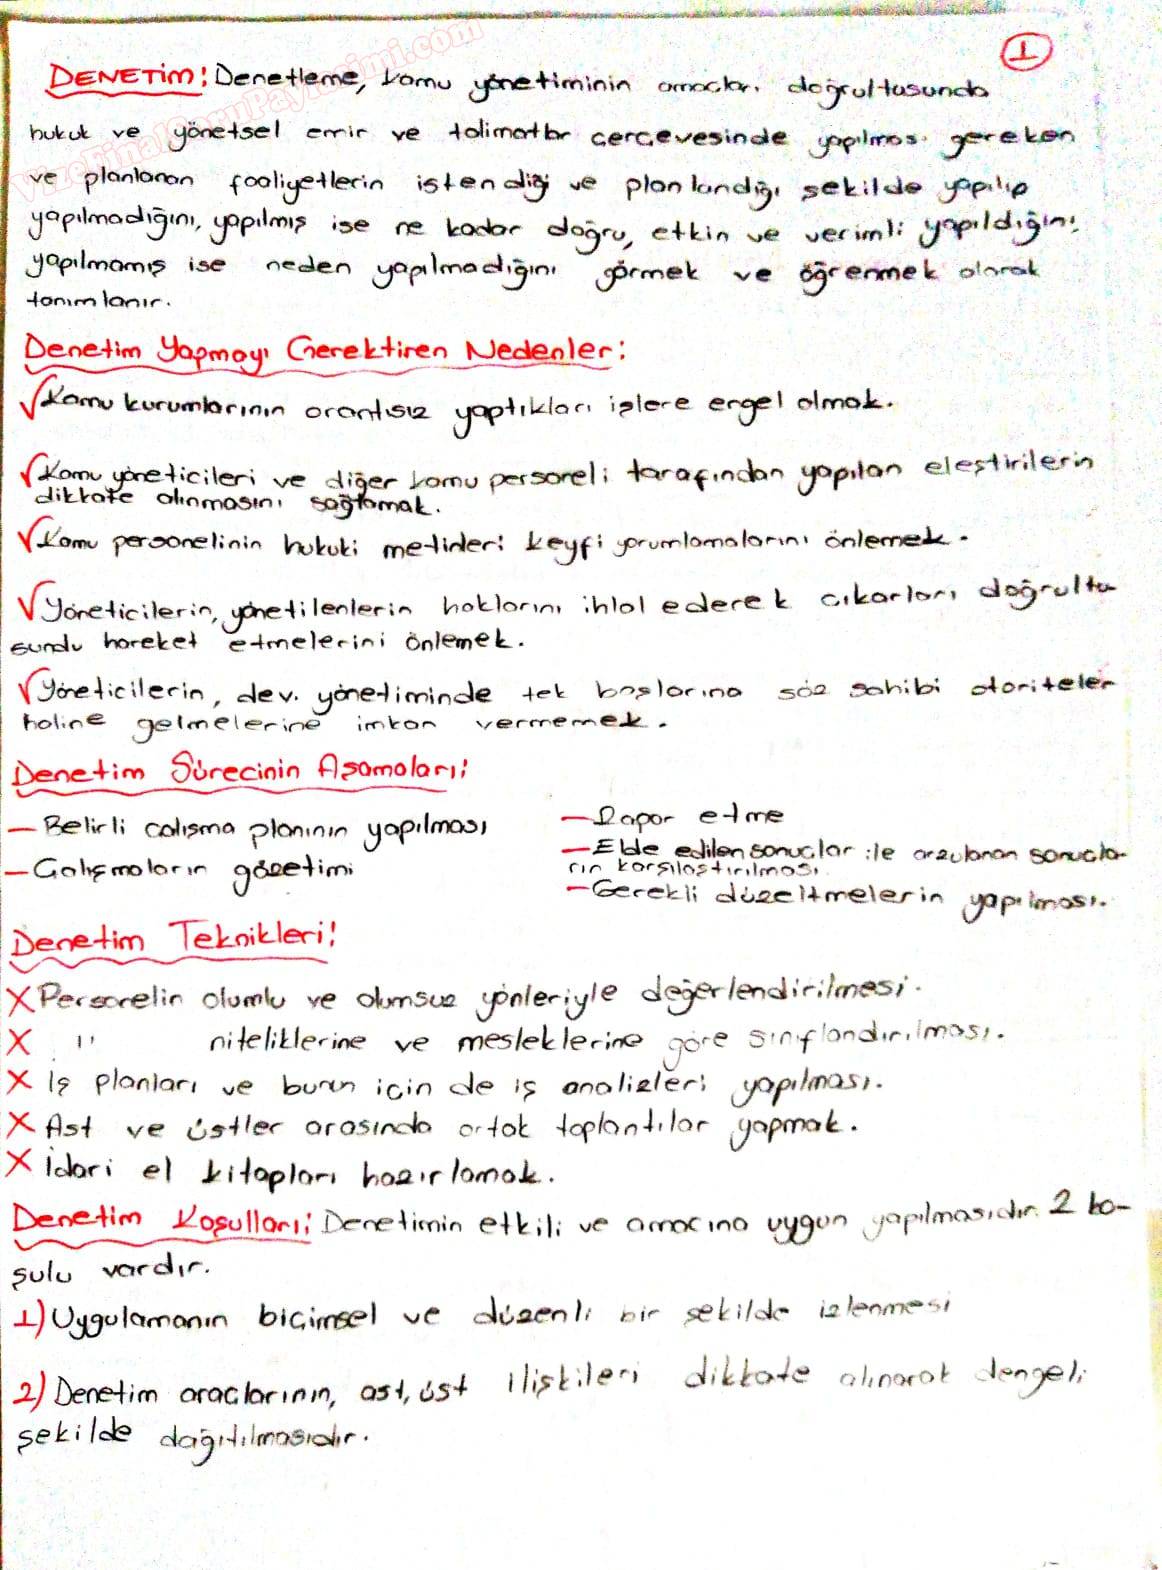 1
DENETİM: Denetleme, kamu yönetiminin amaçları doğrultusunda
hukuk ve yönetsel emir ve talimatlar çerçevesinde yapılması gereken
ve planlanan faaliyetlerin istendiği ve planlandığı şekilde yapılıp
yapılmadığını, yapılmış ise ne kadar doğru, etkin ve verimli yapıldığını,
yapılmamış ise neden yapılmadığını görmek ve öğrenmek olarak
tanımlanır.
Denetim Yapmayı Gerektiren Nedenler:
√ Kamu kurumlarının orantısız yaptıkları işlere engel olmak.
√ Kamu yöneticileri ve diğer kamu personeli tarafından yapılan eleştirilerin
dikkate alınmasını sağlamak.
√ Kamu personelinin hukuki metinleri keyfi yorumlamalarını önlemek.
√ Yöneticilerin, yönetilenlerin haklarını ihlal ederek çıkarları doğrultu-
sundu hareket etmelerini önlemek.
√ Yöneticilerin, dev. yönetiminde tek başlarına söz sahibi otoriteler
haline gelmelerine imkan vermemek.
Denetim Sürecinin Aşamaları:
— Belirli çalışma planının yapılması
— Çalışmaların gözetimi
— Rapor etme
— Elde edilen sonuçlar ile arzulanan sonuçla-
rın karşılaştırılması
— Gerekli düzeltmelerin yapılması.
Denetim Teknikleri:
X Personelin olumlu ve olumsuz yönleriyle değerlendirilmesi.
X " niteliklerine ve mesleklerine göre sınıflandırılması.
X İş planları ve bunun için de iş analizleri yapılması.
X Ast ve üstler arasında ortak toplantılar yapmak.
X İdari el kitapları hazırlamak.
Denetim Koşulları: Denetimin etkili ve amacına uygun yapılmasıdır. 2 ko-
şulu vardır.
1) Uygulamanın biçimsel ve düzenli bir şekilde izlenmesi
2) Denetim araçlarının, ast, üst ilişkileri dikkate alınarak dengeli
şekilde dağıtılmasıdır.
VizeFinalSoruPaylasimi.com